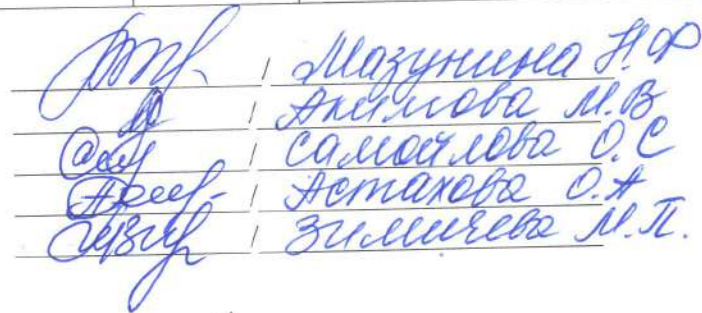 / Мазунина Н.Ф
/ Акимова М.В
/ Самойлова О.С
/ Астахова О.А
/ Зимичева М.П.